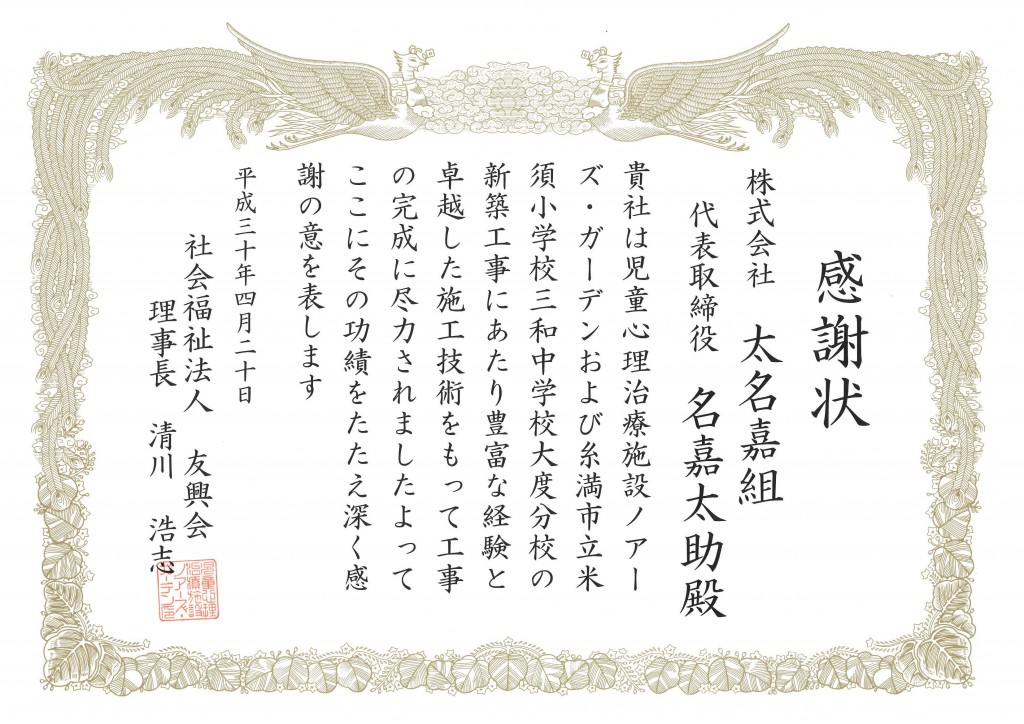 感謝状
株式会社 太名嘉組
代表取締役 名嘉太助殿
貴社は児童心理治療施設ノアー
ズ・ガーデンおよび糸満市立米
須小学校三和中学校大度分校の
新築工事にあたり豊富な経験と
卓越した施工技術をもって工事
の完成に尽力されましたよって
ここにその功績をたたえ深く感
謝の意を表します
平成三十年四月二十日
社会福祉法人 友興会
理事長 清川 浩志
児童心理
治療施設
ノアーズ・
ガーデン印